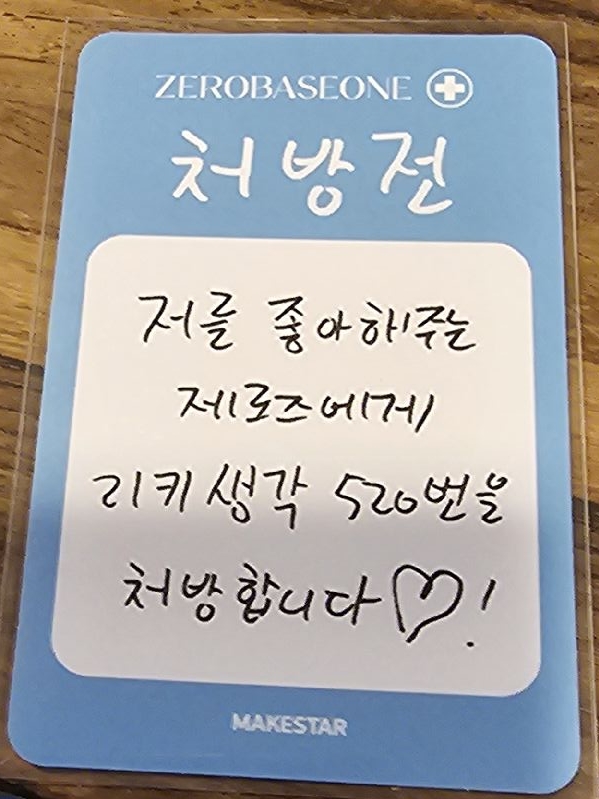 ZEROBASEONE
처방전
저를 좋아해주는
제로즈에게
리키생각 520번을
처방합니다♡!
MAKESTAR